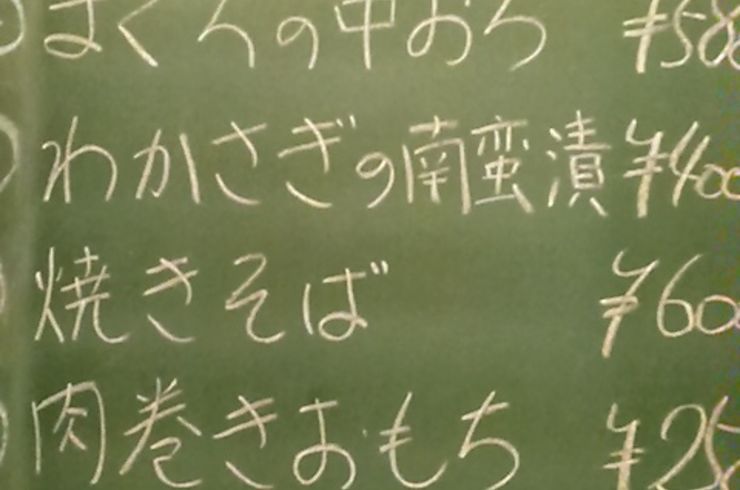 まぐろの中おち ¥580
わかさぎの南蛮漬 ¥400
焼きそば ¥600
肉巻きおもち ¥25